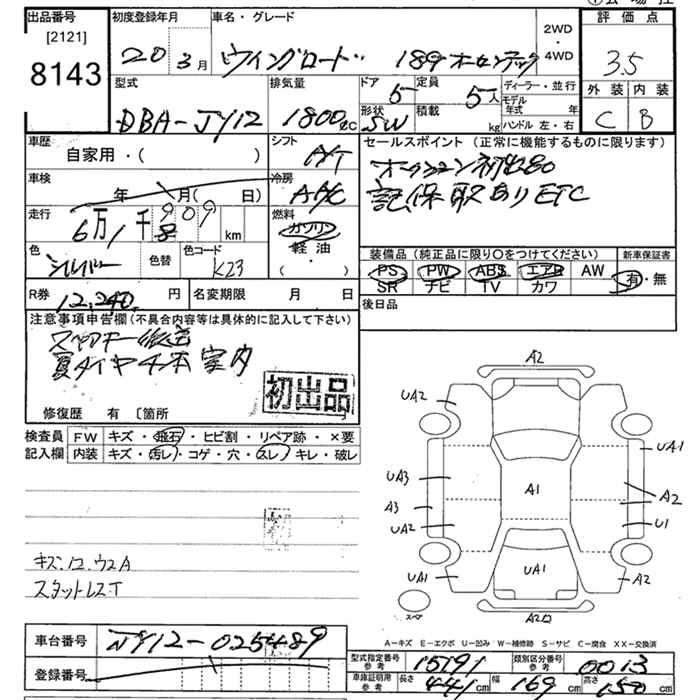 出品番号
[2121]
8143
初度登録年月
20年3月
車名・グレード
ウイングロード 18G オーセンティック
2WD
・
4WD
評価点
3.5
外装 内装
C B
型式
DBA-JY12
排気量
1800cc
ドア 5
形状 SW
定員 5人
積載 kg
ディーラー・並行
モデル年式 年
ハンドル 左・右
車歴
自家用・( )
シフト
A/T
セールスポイント (正常に機能するものに限ります)
オークション初出品
記保取あり ETC
車検
年 月( 日)
冷房
A/C
走行
6万1千909km
燃料
ガソリン
軽油
( ・ )
色
シルバー
色替
色コード
K23
装備品 (純正品に限り○をつけてください) 新車保証書
PS PW ABS エアB AW 有・無
SR ナビ TV カワ
R券 12,240円
名変期限 月 日
後日品
注意事項申告欄 (不具合内容等は具体的に記入して下さい)
スペアキー後送
夏タイヤ4本室内
初出品
修復歴 有 〔箇所
検査員 FW キズ・飛石・ヒビ割・リペア跡・×要
記入欄 内装 キズ・汚レ・コゲ・穴・スレ・キレ・破レ
キズ.12.ウスA
スタットレスT
A2
UA2
UA1
UA3
A1
A2
A3
UA2
U1
UA1
UA1
A2
スペア
A-キズ E-エクボ U-凹み W-補修跡 S-サビ C-腐食 XX-交換済
車台番号 NY12-025489
登録番号
型式指定番号参考 15191 類別区分番号参考 0013
車庫証明用参考 長さ 441cm 幅 169cm 高さ 150cm